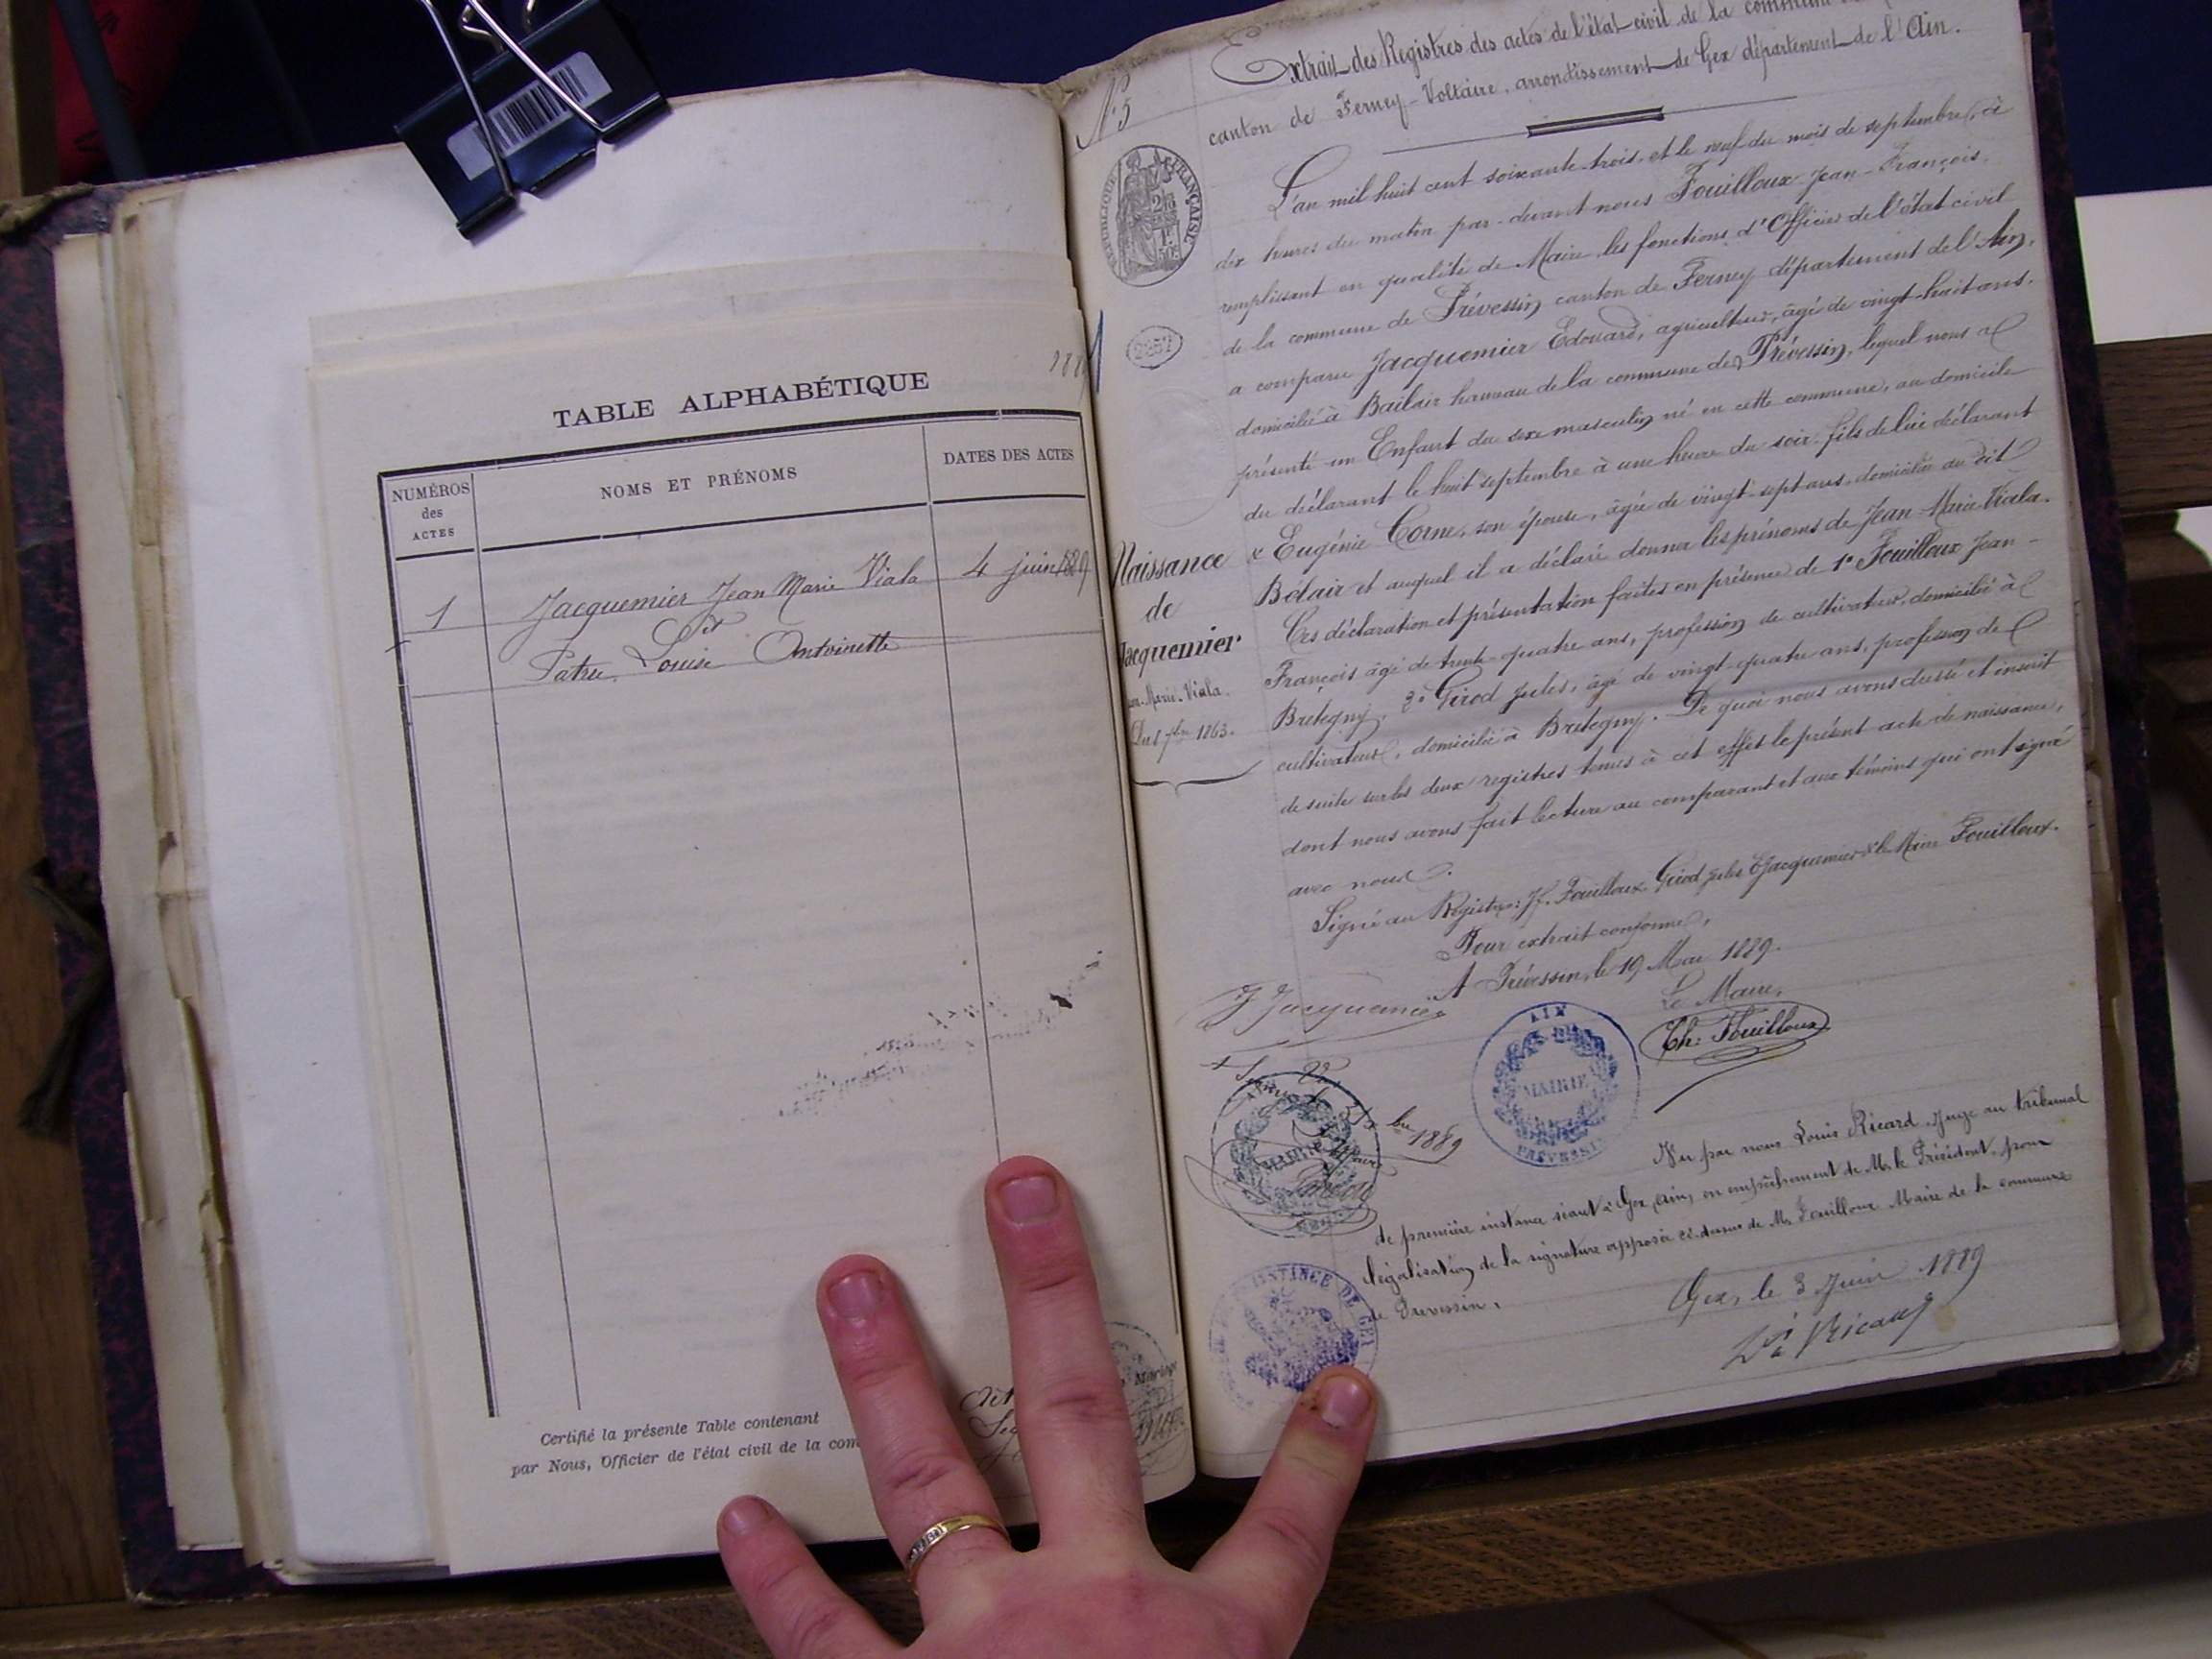 1889
TABLE ALPHABÉTIQUE
NUMÉROS
des
ACTES
NOMS ET PRÉNOMS
DATES DES ACTES
1 Jacquemier Jean Marie Viala 4 juin 1889
et
Patru Louise Antoinette
Certifié la présente Table contenant
par Nous, Officier de l'état civil de la com
N° 5
Extrait des Registres des actes de l'état civil de la commune
canton de Ferney-Voltaire, arrondissement de Gex département de l'Ain.
RÉPUBLIQUE FRANÇAISE
L'an mil huit cent soixante-trois, et le neuf du mois de septembre, à
dix heures du matin par-devant nous Fouilloux Jean-François,
remplissant en qualité de Maire les fonctions d'Officier de l'état civil
de la commune de Prévessin canton de Ferney département de l'Ain,
a comparu Jacquemier Edouard, agriculteur, âgé de vingt-huit ans.
domicilié à Bailair hameau de la commune de Prévessin, lequel nous a
présenté un Enfant du sexe masculin né en cette commune, au domicile
du déclarant le huit septembre à une heure du soir, fils de lui déclarant
Naissance
de
Jacquemier
Jean-Marie-Viala.
1863.
& Eugénie Corne, son épouse, âgée de vingt-sept ans, domiciliée au dit
Bélair et auquel il a déclaré donner les prénoms de Jean-Marie-Viala.
Ces déclaration et présentation faites en présence de 1° Fouilloux Jean-
François âgé de trente-quatre ans, profession de cultivateur, domicilié à
Bretegny, 2° Girod Jules, âgé de vingt-quatre ans, profession de
cultivateur, domicilié à Bretegny. De quoi nous avons dressé et inscrit
de suite sur les deux registres tenus à cet effet le présent acte de naissance,
dont nous avons fait lecture au comparant et aux témoins qui ont signé
avec nous.
Signé au Registre: Jf. Fouilloux, Girod Jules, E Jacquemier & le Maire Fouilloux.
Pour extrait conforme,
A Prévessin, le 19 Mai 1889.
J Jacquemier
Le Maire,
Th: Fouilloux
AIN
MAIRIE
PRÉVESSIN
1889
MAIRIE
Vu par nous Louis Ricard, Juge au tribunal
de première instance séant à Gex, Ain, en empêchement de M. le Président, pour
légalisation de la signature apposée ci-dessus de M. Fouilloux Maire de la commune
de Prévessin.
INSTANCE DE GEX
Gex, le 3 Juin 1889
Ricard